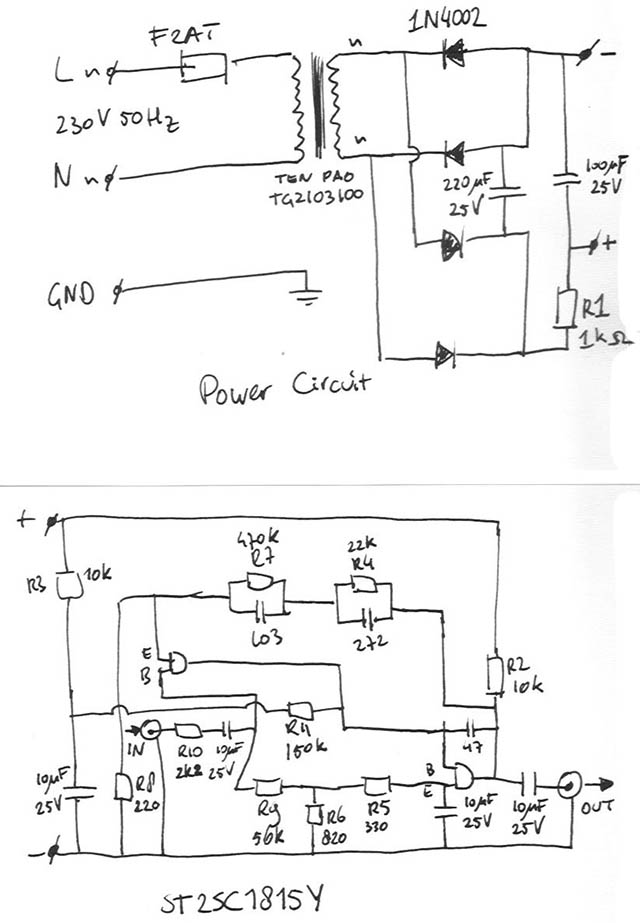 1N4002
F2AT
n
L n
−
230V 50Hz
n
N n
TEN PAO
TG2103100
220µF
25V
100µF
25V
+
GND
R1
1kΩ
Power Circuit
+
470k
R7
22k
R4
R3
10k
603
272
E
B
R2
10k
IN
R10
2k2
10µF
25V
R11
150k
47
10µF
25V
R8
220
R9
56k
R6
820
R5
330
B
E
10µF
25V
10µF
25V
OUT
−
ST2SC1815Y